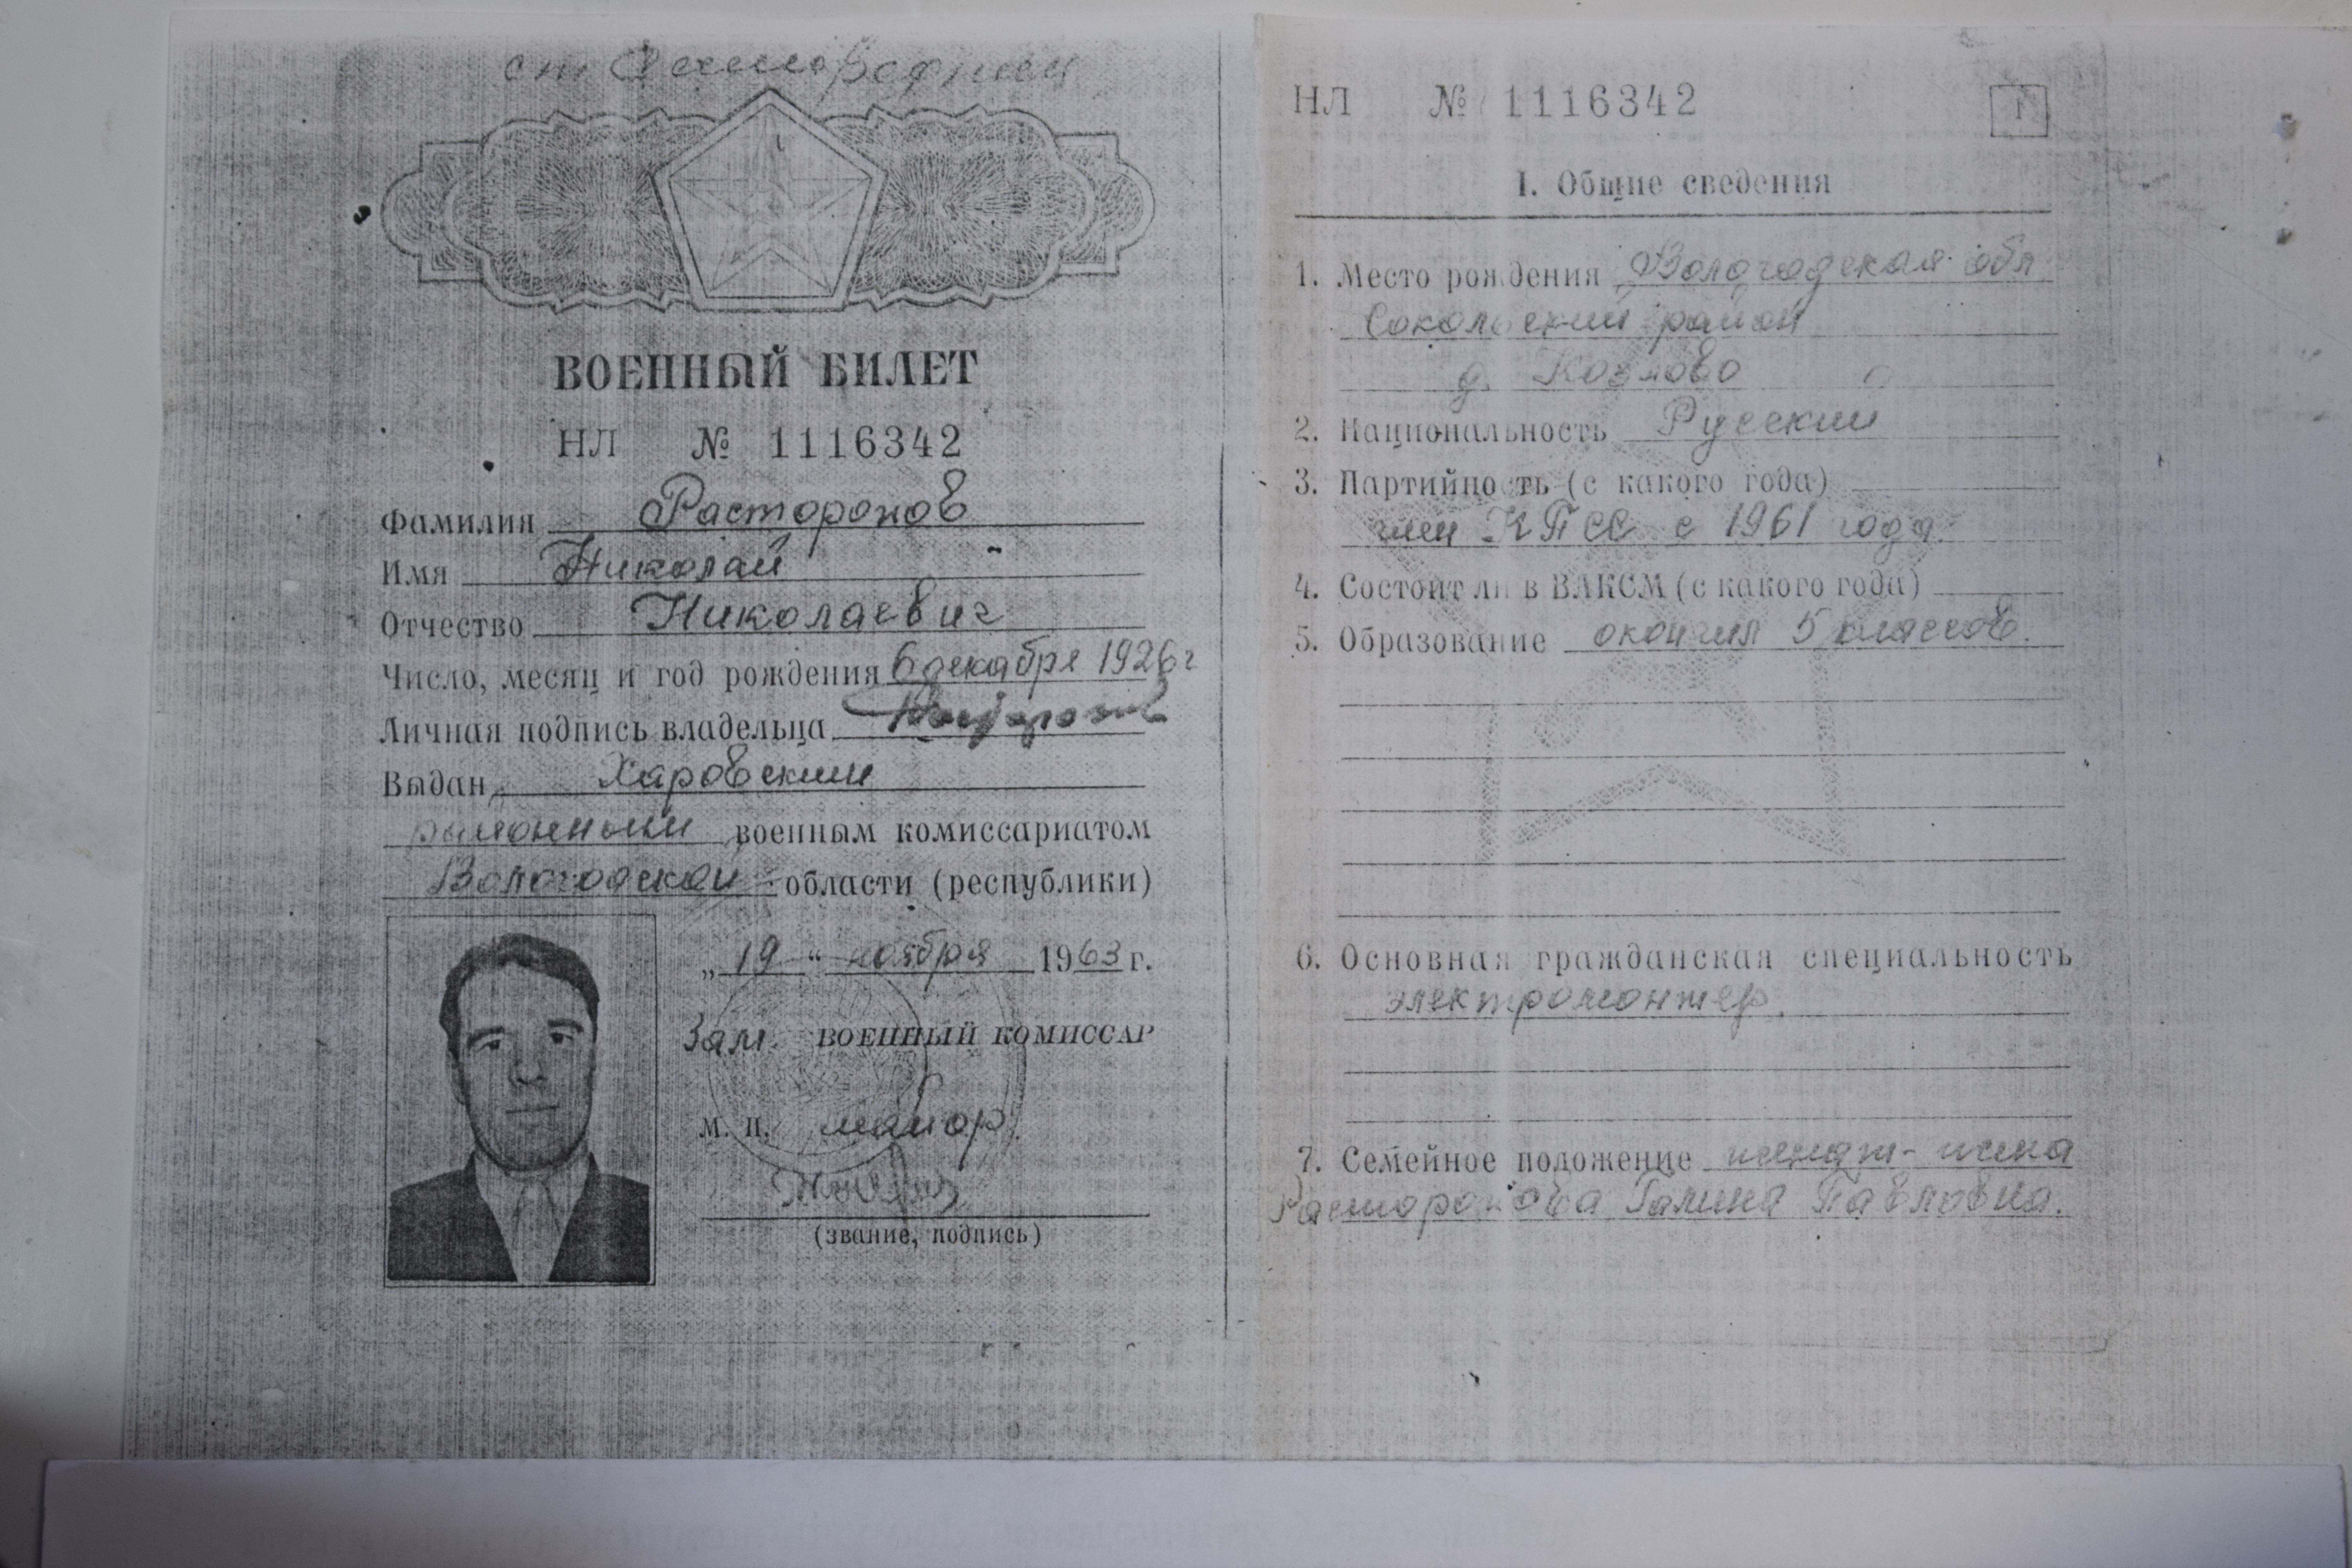 ст
ВОЕННЫЙ БИЛЕТ
НЛ № 1116342
Фамилия Расторопов
Имя Николай
Отчество Николаевич
Число, месяц и год рождения 6 декабря 1926 г
Личная подпись владельца
Выдан Харовским
районным военным комиссариатом
Вологодской области (республики)
„19“ ноября 1963 г.
Зам. ВОЕННЫЙ КОМИССАР
м. п. майор
(звание, подпись)
НЛ № 1116342
1
I. Общие сведения
1. Место рождения Вологодская обл
Сокольский район
д. Козлово
2. Национальность Русский
3. Партийность (с какого года)
член КПСС с 1961 года.
4. Состоит ли в ВЛКСМ (с какого года)
5. Образование окончил 5 классов.
6. Основная гражданская специальность
электромонтер.
7. Семейное положение женат - жена
Расторопова Галина Павловна.